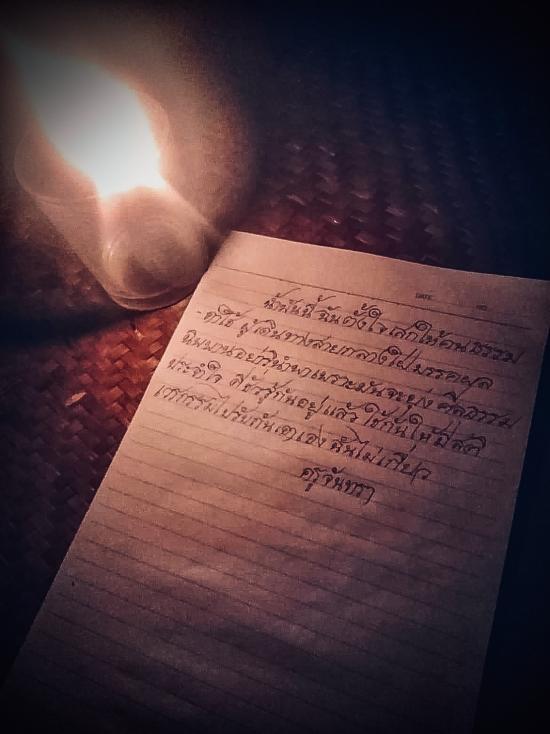 DATE NO
น้ำมันนี้ ฉันตั้งใจเสกให้คนธรรม
-ดาใช้ ผู้เดินทางสายกลางใฝ่มรรคผล
นิพพานอย่ารินำพาเพราะมันจะยุ่ง ศีลธรรม
ประจำใจ ดีชั่วรู้กันอยู่แล้ว ใช้กันให้มีสติ
เวรกรรมไปรับกันเอาเอง ฉันไม่เกี่ยว
ครูจันทรา